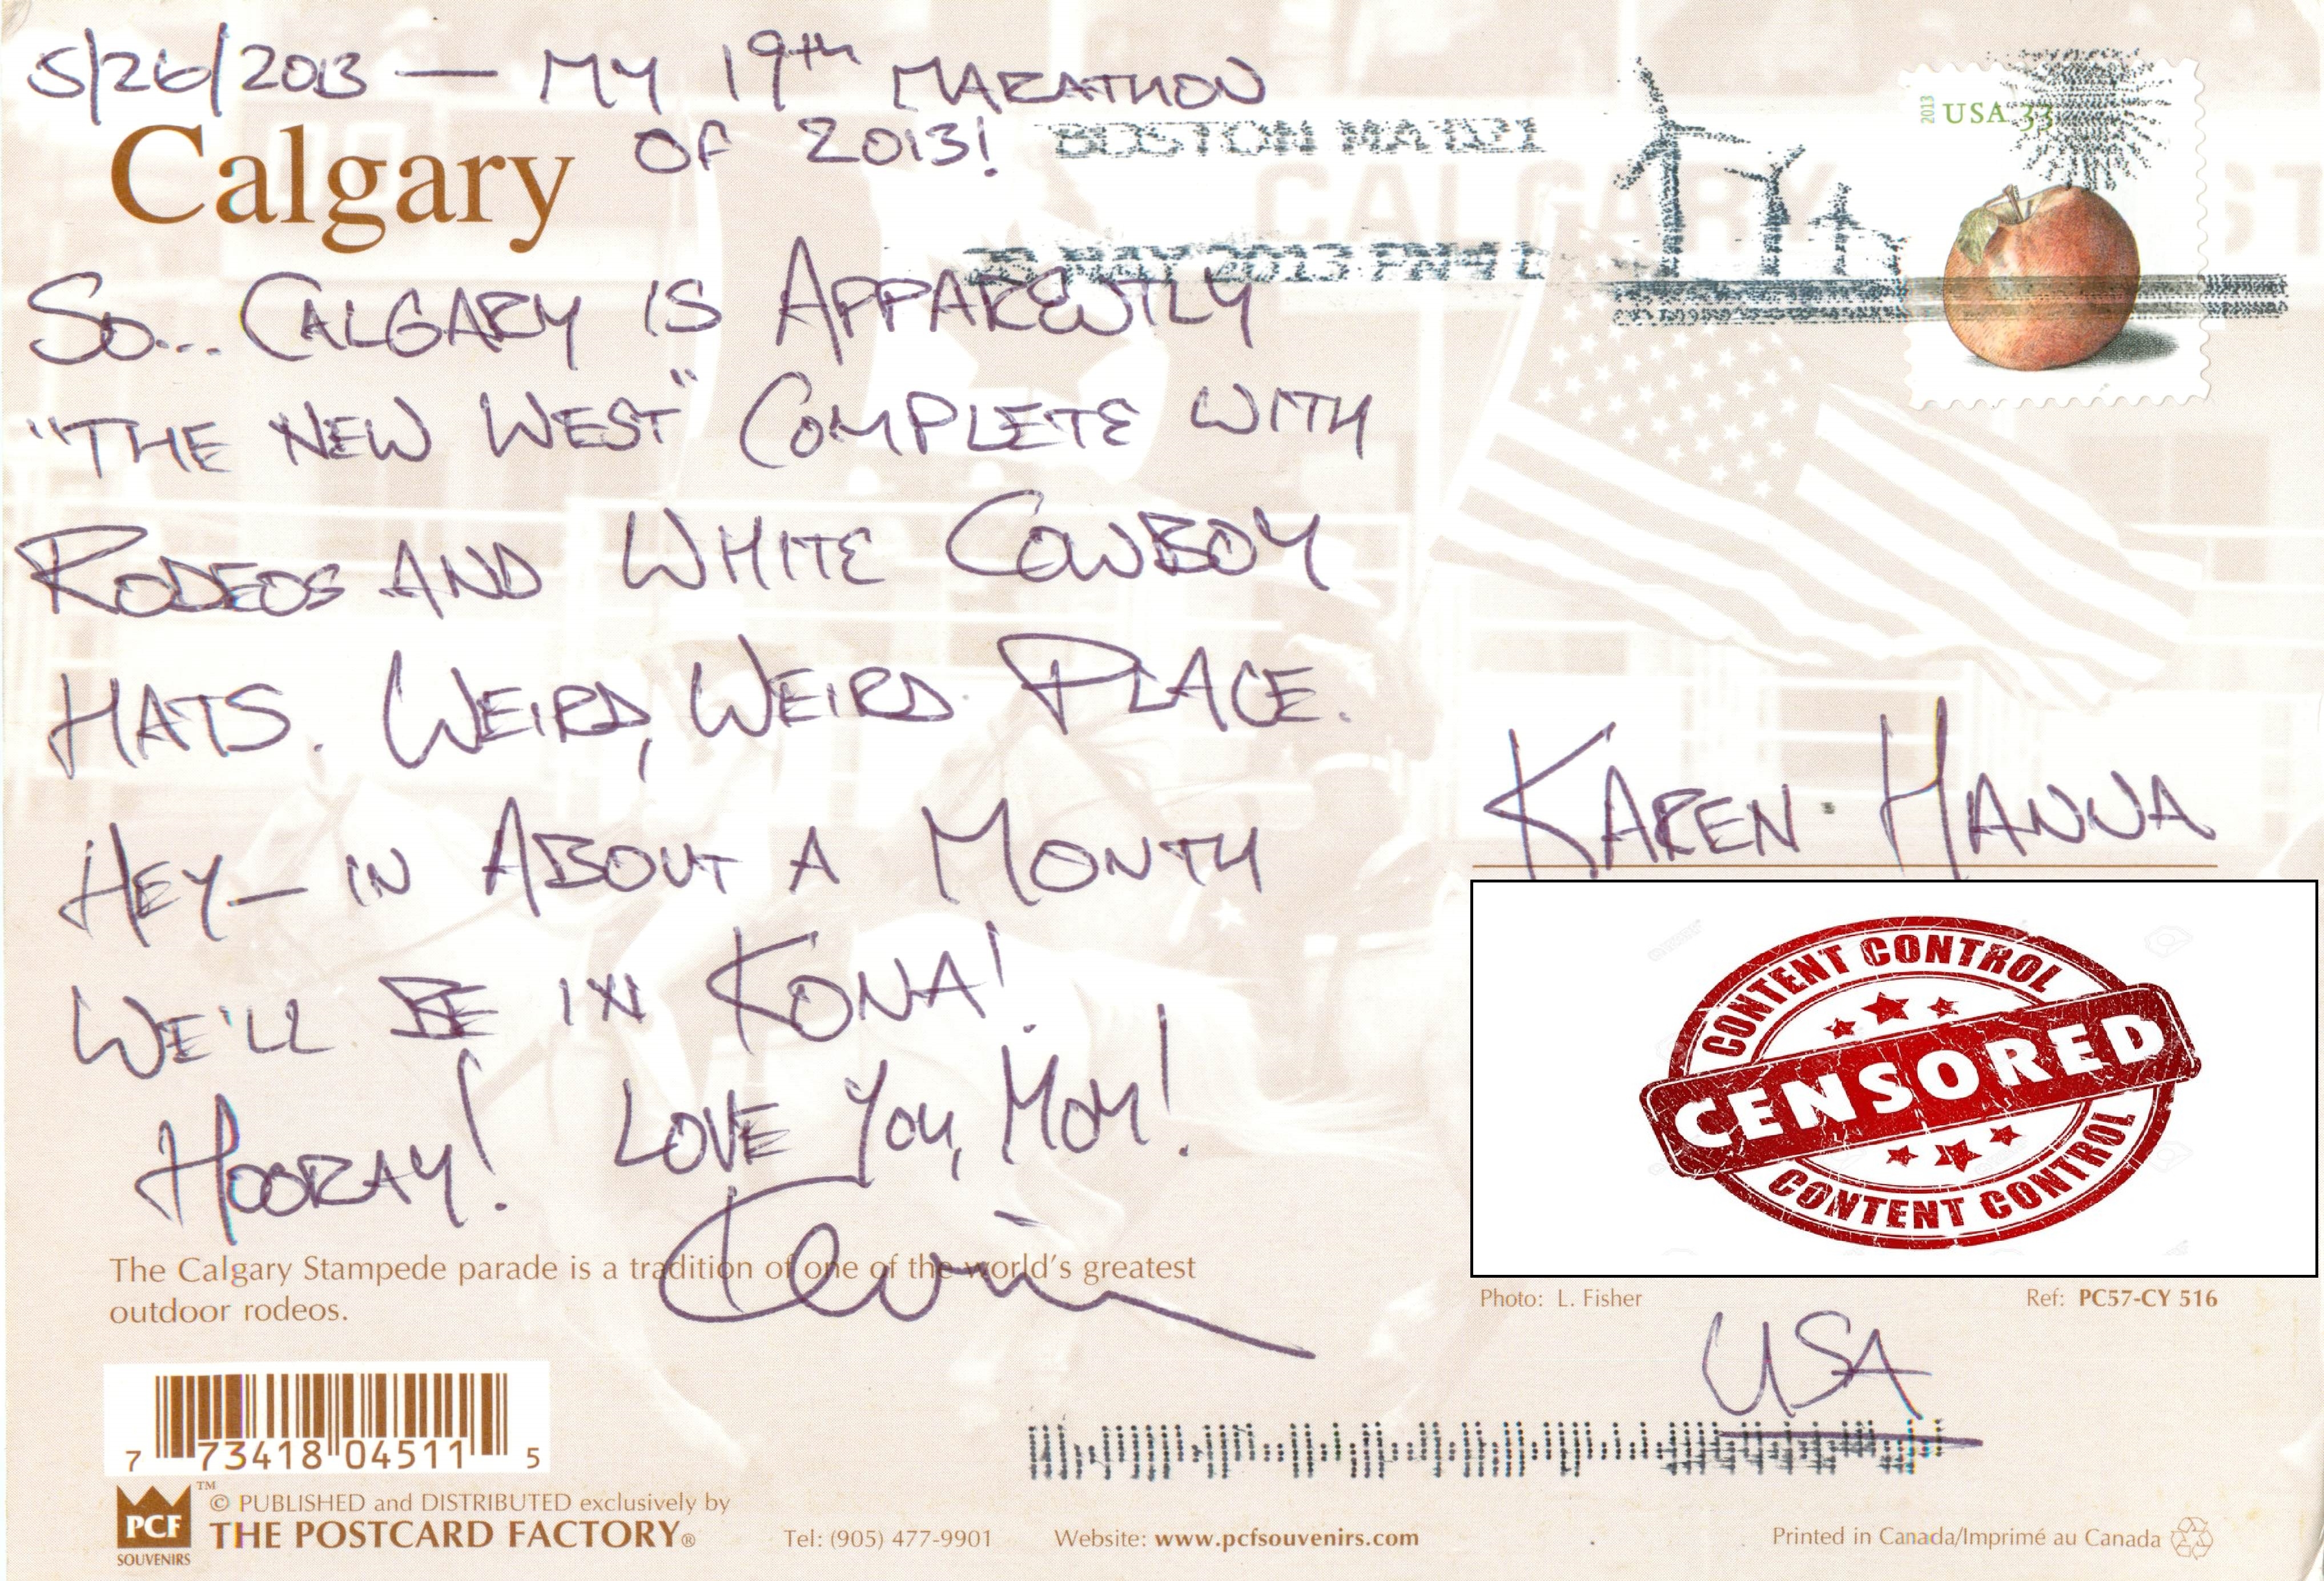 5/26/2013 — MY 19th MARATHON
OF 2013!
Calgary
SO... CALGARY IS APPARENTLY
"THE NEW WEST" COMPLETE WITH
RODEOS AND WHITE COWBOY
HATS. WEIRD, WEIRD PLACE.
HEY— IN ABOUT A MONTH
WE'LL BE IN KONA!
HOORAY! LOVE YOU, MOM!
Kevin
The Calgary Stampede parade is a tradition of one of the world's greatest
outdoor rodeos.
7 73418 04511 5
PCF
SOUVENIRS
™ © PUBLISHED and DISTRIBUTED exclusively by
THE POSTCARD FACTORY®
Tel: (905) 477-9901
Website: www.pcfsouvenirs.com
BOSTON MA 021
MAY 2013 PM 4 L
2013 USA 33
CALGARY
KAREN HANNA
CONTENT CONTROL
CENSORED
CONTENT CONTROL
Photo: L. Fisher
Ref: PC57-CY 516
USA
Printed in Canada/Imprimé au Canada